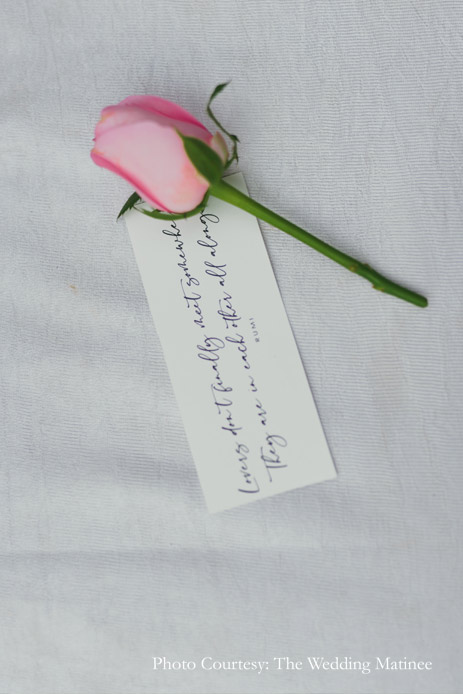 Lovers don't finally meet somewhe
They are in each other all along
RUMI
Photo Courtesy: The Wedding Matinee